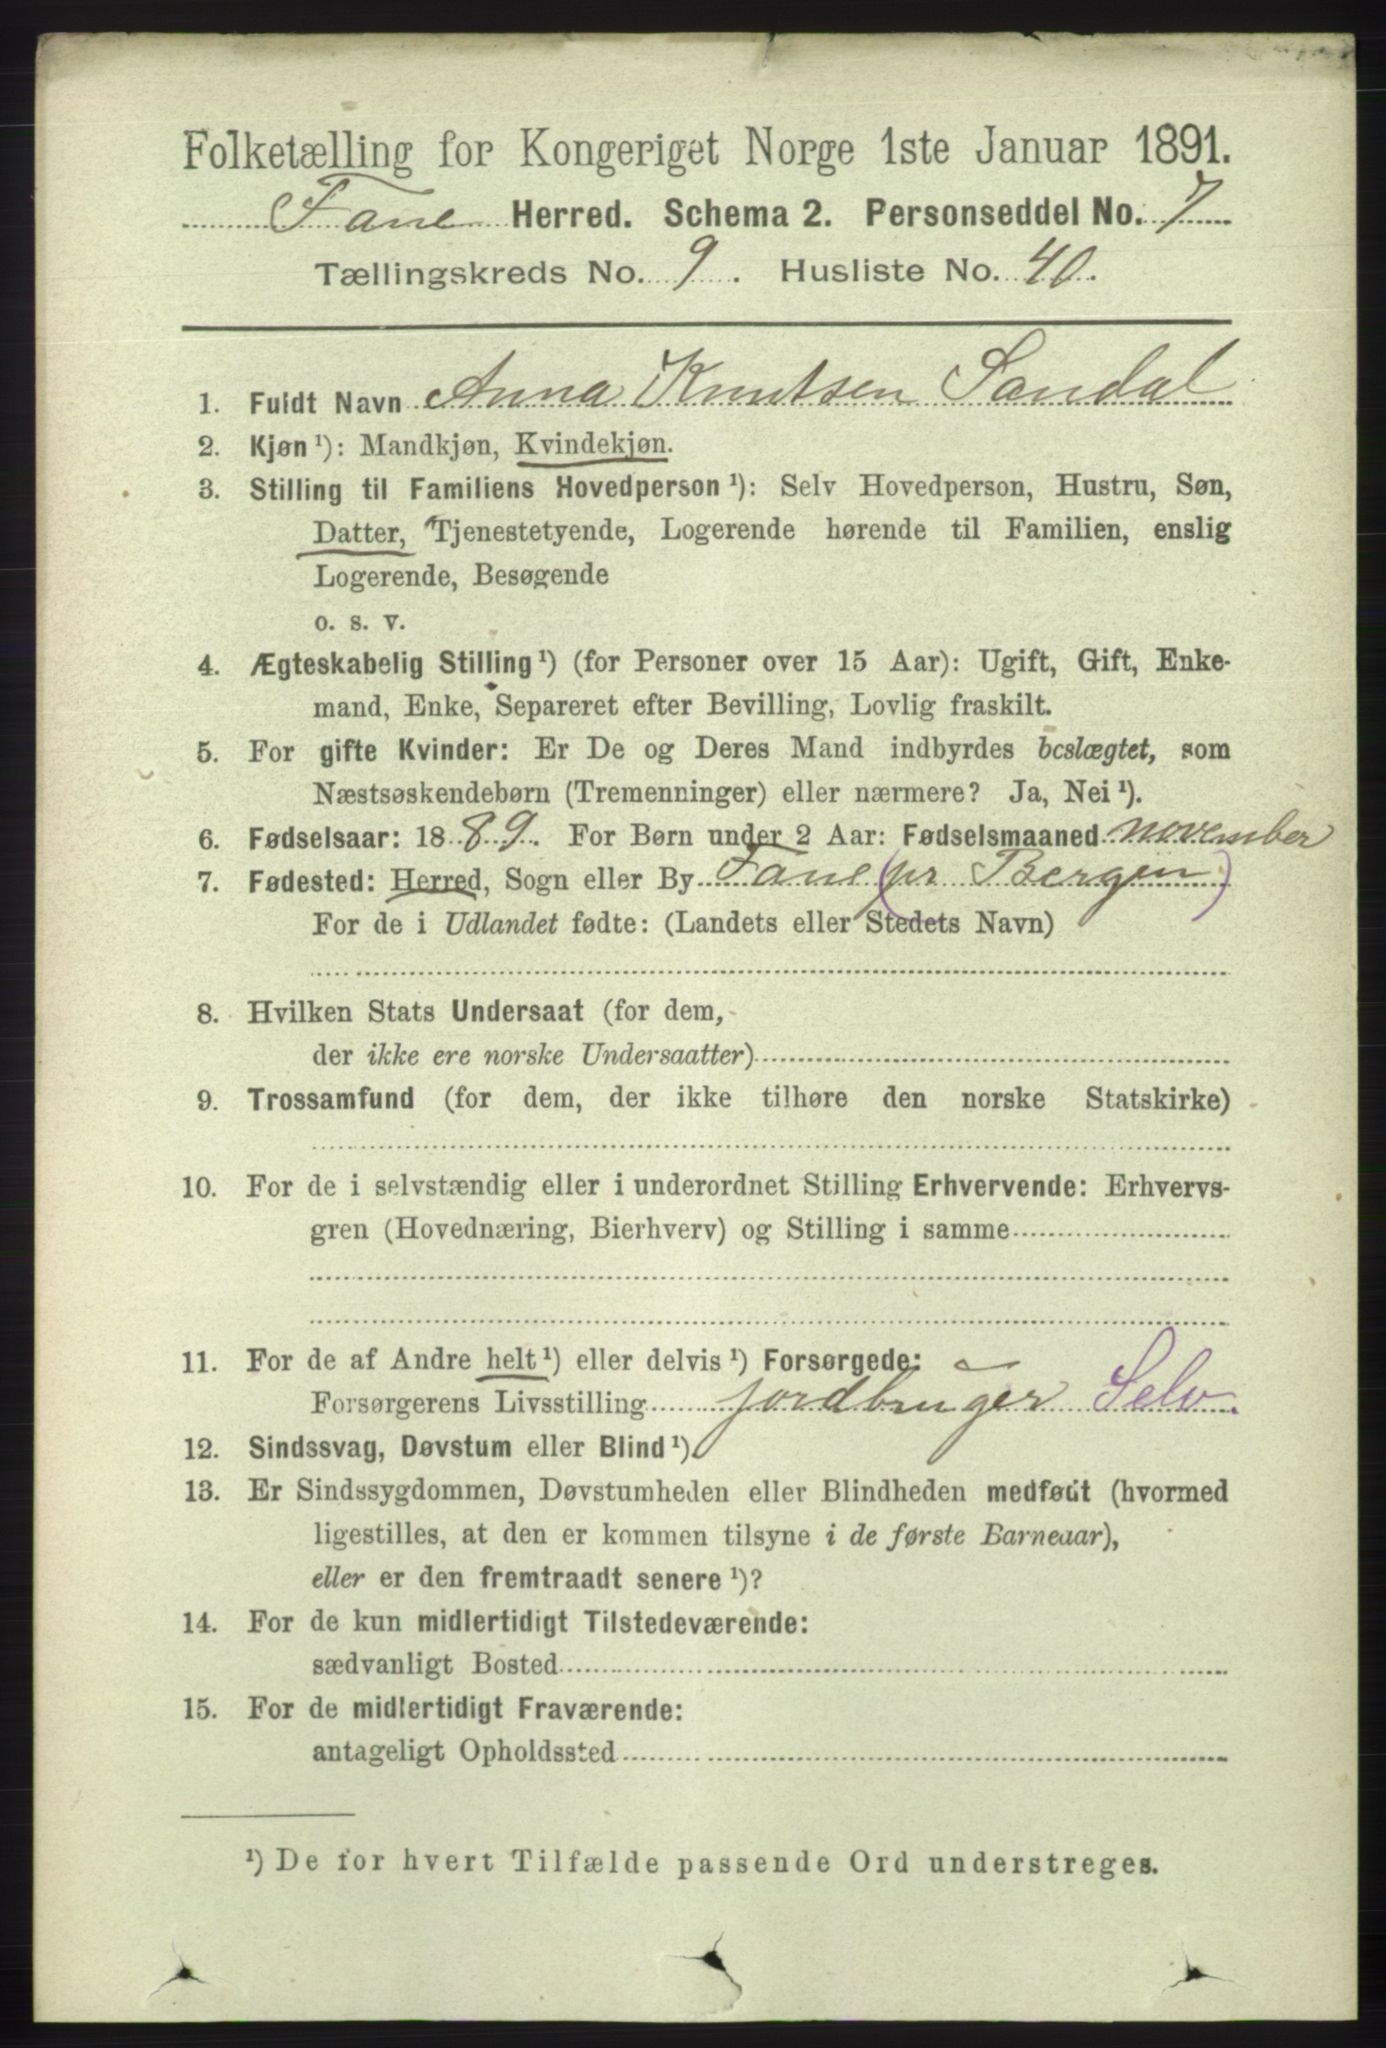 Folketælling for Kongeriget Norge 1ste Januar 1891.
Fane Herred. Schema 2. Personseddel No. 7
Tællingskreds No. 9. Husliste No. 40.
1. Fuldt Navn Anna Knutsen Sandal
2. Kjøn¹): Mandkjøn, Kvindekjøn.
3. Stilling til Familiens Hovedperson¹): Selv Hovedperson, Hustru, Søn,
Datter, Tjenestetyende, Logerende hørende til Familien, enslig
Logerende, Besøgende
o. s. v.
4. Ægteskabelig Stilling¹) (for Personer over 15 Aar): Ugift, Gift, Enke-
mand, Enke, Separeret efter Bevilling, Lovlig fraskilt.
5. For gifte Kvinder: Er De og Deres Mand indbyrdes beslægtet, som
Næstsøskendebørn (Tremenninger) eller nærmere? Ja, Nei¹).
6. Fødselsaar: 1889. For Børn under 2 Aar: Fødselsmaaned november
7. Fødested: Herred, Sogn eller By Fane (pr Bergen)
For de i Udlandet fødte: (Landets eller Stedets Navn)
8. Hvilken Stats Undersaat (for dem,
der ikke ere norske Undersaatter)
9. Trossamfund (for dem, der ikke tilhøre den norske Statskirke)
10. For de i selvstændig eller i underordnet Stilling Erhvervende: Erhvervs-
gren (Hovednæring, Bierhverv) og Stilling i samme
11. For de af Andre helt¹) eller delvis¹) Forsørgede:
Forsørgerens Livsstilling jordbruger Selv.
12. Sindssvag, Døvstum eller Blind¹).
13. Er Sindssygdommen, Døvstumheden eller Blindheden medfødt (hvormed
ligestilles, at den er kommen tilsyne i de første Barneaar),
eller er den fremtraadt senere¹)?
14. For de kun midlertidigt Tilstedeværende:
sædvanligt Bosted
15. For de midlertidigt Fraværende:
antageligt Opholdssted
¹) De for hvert Tilfælde passende Ord understreges.